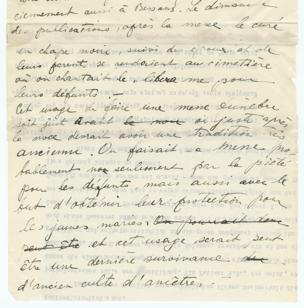 ciennement aussi à Bessans. Le dimanche
des publications, après la messe le curé
en chape noire, suivi du
leurs parents se rendaient au cimetière
où on chantait le libera me pour
leurs défunts.
Cet usage de dire une messe funèbre
soit juste avant la noce ou juste après
la noce devait avoir une tradition très
ancienne. On faisait la messe pro
bablement non seulement par la piété
pour les défunts mais aussi avec le
but d'obtenir leur protection pour
les jeunes mariés. On pourrait
peut-être et cet usage serait peut
être une dernière survivance
d'ancien culte d'ancêtres.